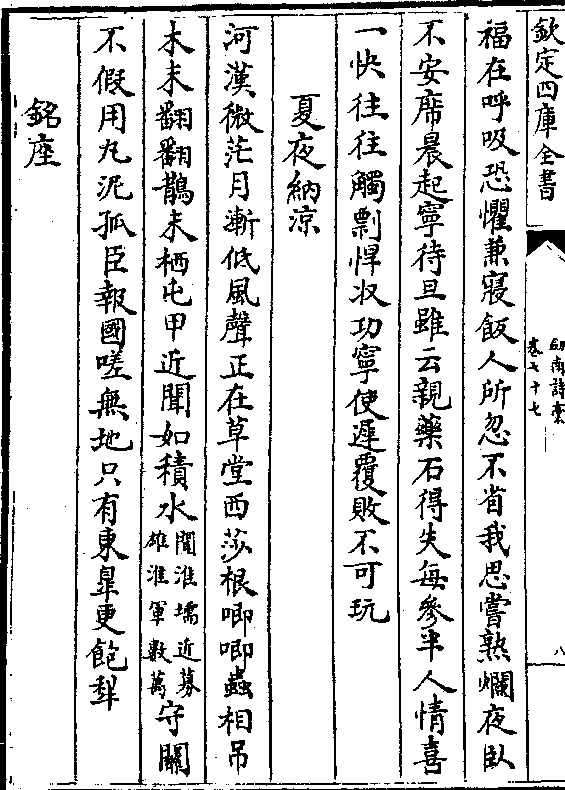 欽定四庫全書
劒南詩稾
卷七十七
八
福在呼吸恐懼兼寢飯人所忽不省我思嘗熟爛夜卧
不安席晨起寧待旦雖云親藥石得失每參半人情喜
一快往往觸剽悍收功寧使遲覆敗不可玩
夏夜納涼
河漢微茫月漸低風聲正在草堂西莎根唧唧蟲相弔
木末翻翻鵲未栖屯甲近聞如積水聞淮壖近募雄淮軍數萬守關
不假用丸泥孤臣報國嗟無地只有東臯更飽犂
銘座